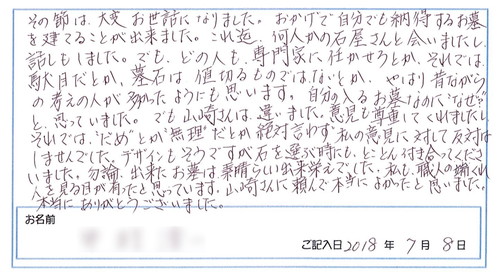 その節は、大変お世話になりました。おかげで自分でも納得するお墓
を建てることが出来ました。これ迄、何人かの石屋さんと会いましたし、
話しもしました。でも、どの人も、専門家に任かせろとか、それでは、
駄目だとか、墓石は値切るものではないとか、やはり昔ながら
の考えの人が多かったようにも思います。自分の入るお墓なのに"なぜ"
と、思っていました。でも山崎さんは、違いました。意見も尊重してくれましたし、
それでは、"だめ"とか"無理"だとか絶対言わず、私の意見に対して反対は
しませんでした。デザインもそうですが石を選ぶ時にも、とことん付き合ってくださ
いました。勿論、出来たお墓は素晴らしい出来栄えでした。私も、職人の端くれ
人を見る目が有ったと思っています。山崎さんに頼んで本当によかったと思いました。
本当にありがとうございました。
お名前
ご記入日 2018 年 7 月 8 日